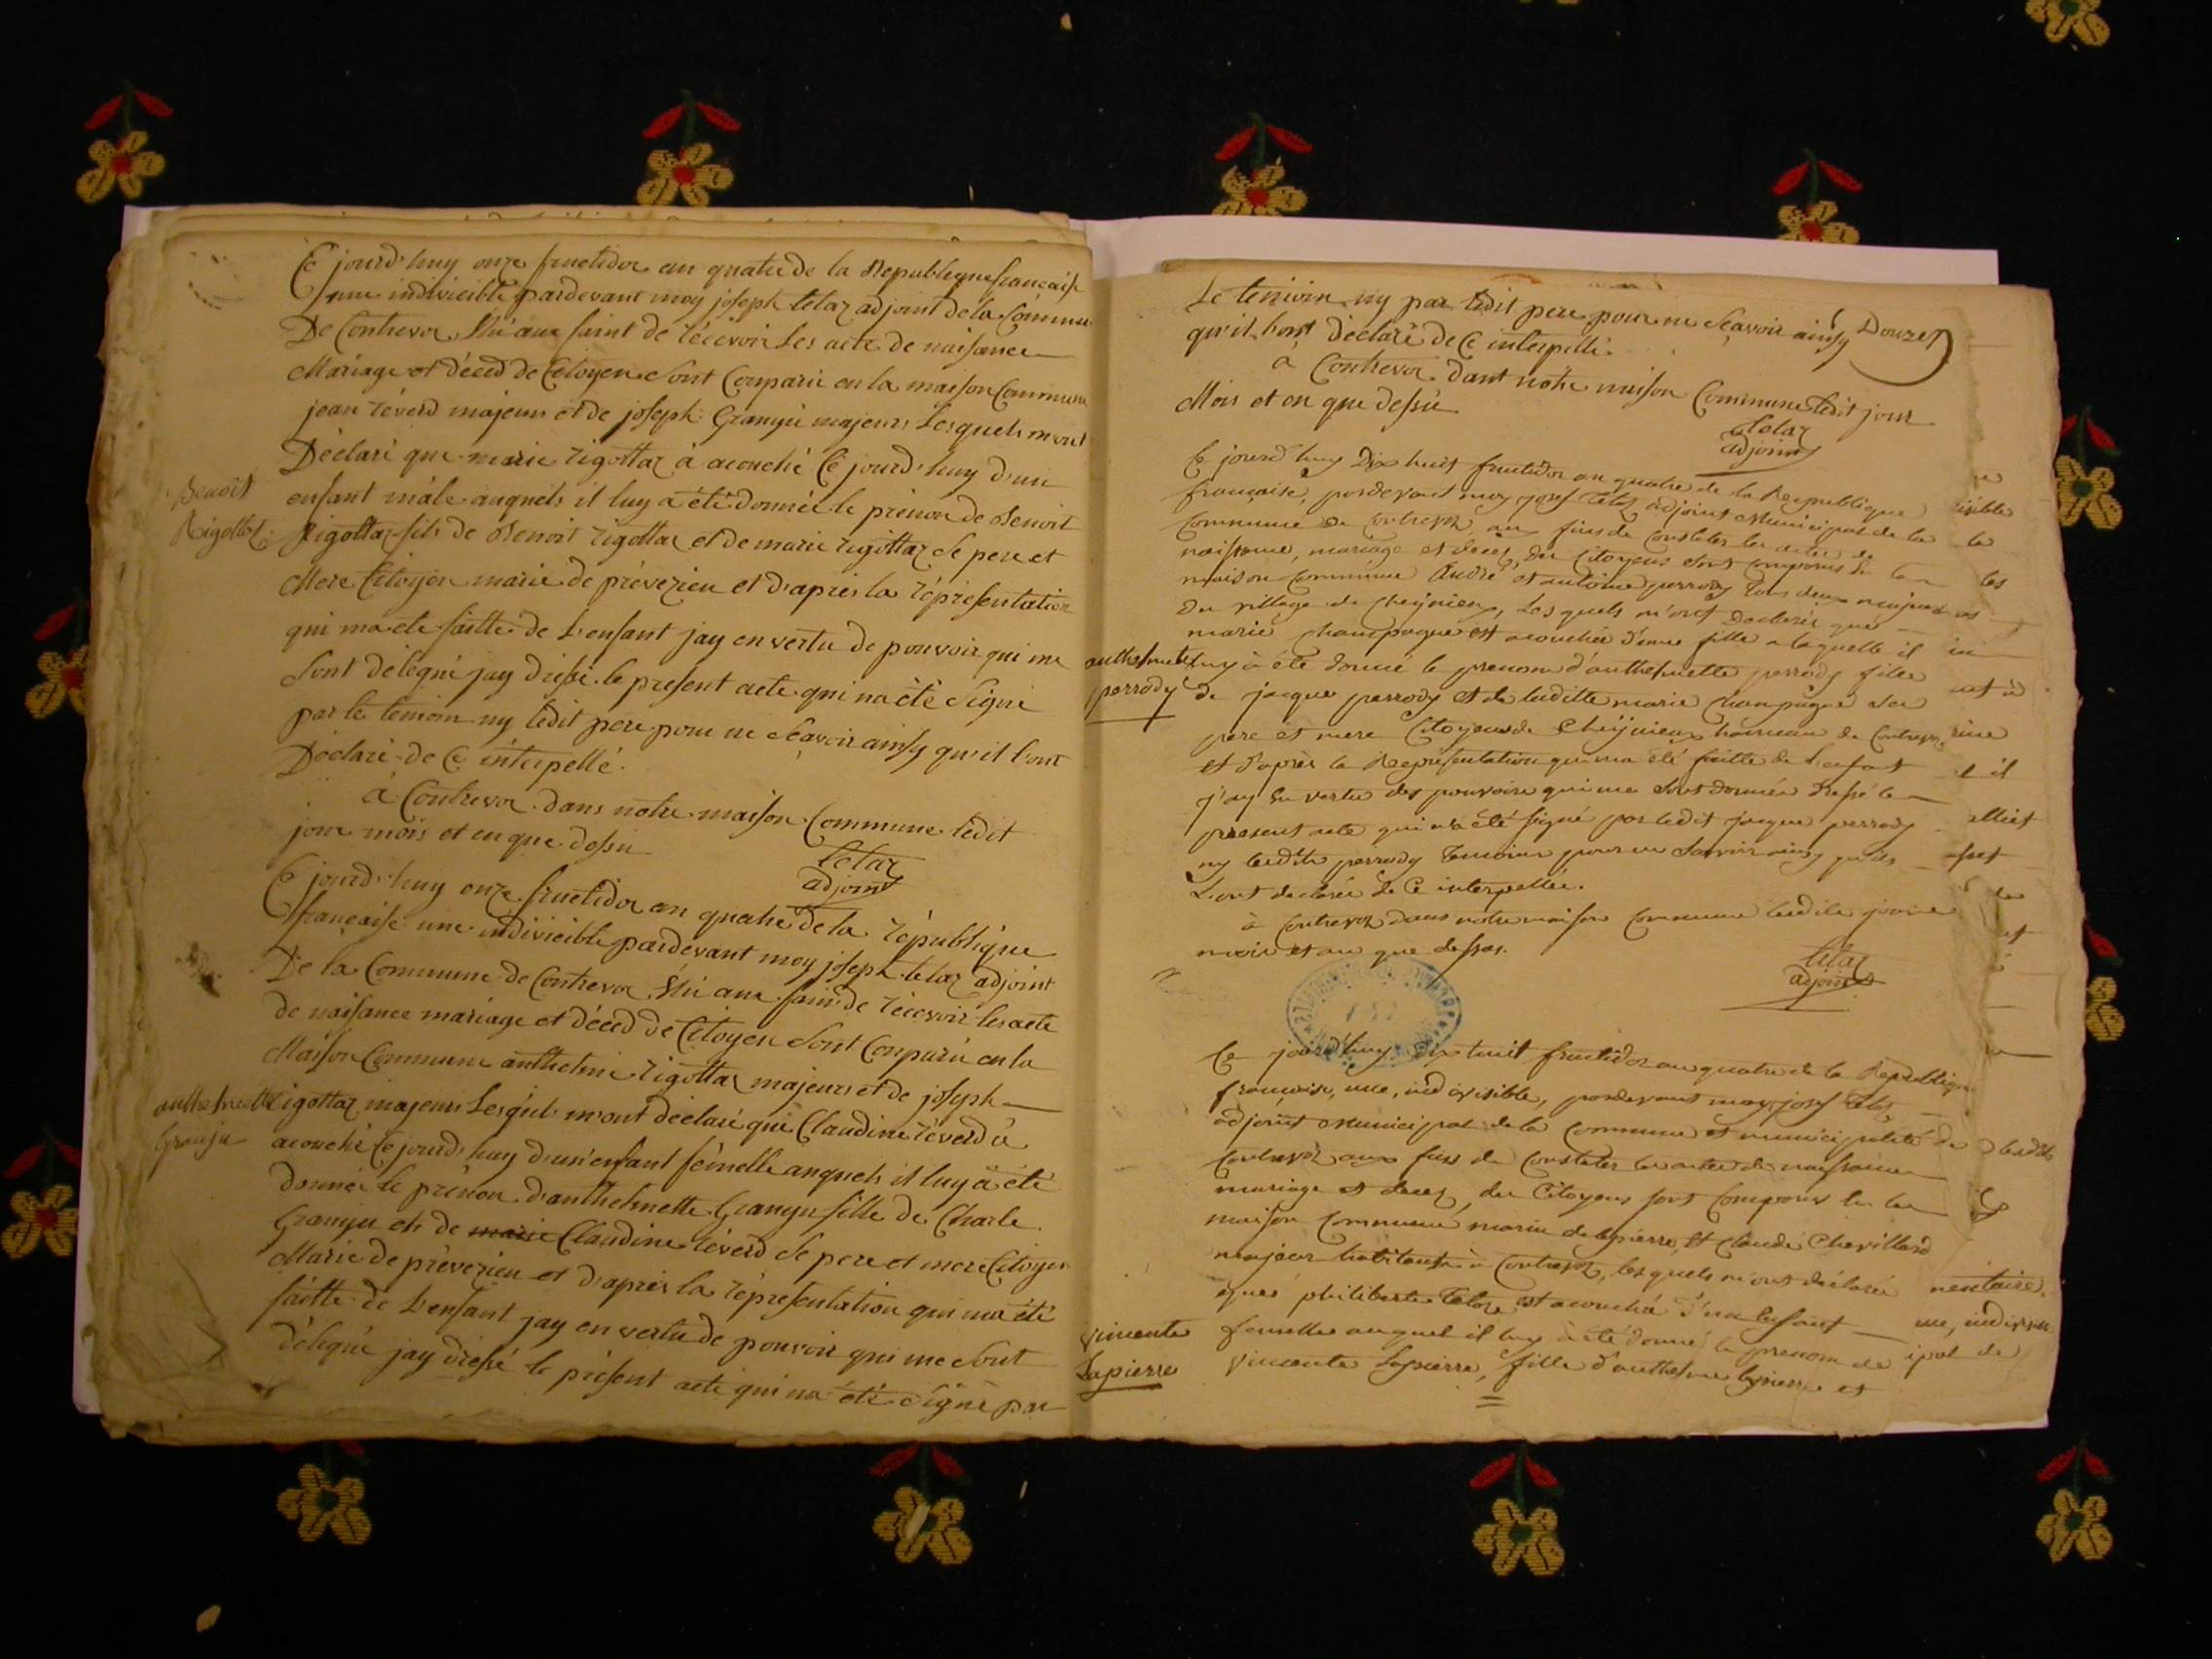 Ce jourd'huy onze fructidor an quatre de la Republique francaise
une indivicible pardevant moy joseph telaz adjoint de la Commune
De Contrevoz Élu aux faint de récevoir Les acte de naisance
Mariage et décéd de Citoyen Sont Conparu en la maison Commune
jean réverd majeurs et de joseph Granju majeurs Lesquels mont
Déclaré que marie rigottaz à acouché Ce jourd'huy d'un
enfant mâle auquels il luy a été donnée le prénon de Benoit
Benoit
Rigottaz
Rigottaz fils de Benoit rigottaz et de marie rigottaz Se pere et
Mere Citoyen marie de prévezieu et d'après la réprésentation
qui ma ete faitte de L'enfant jay en vertu de pouvoir qui me
Sont délégué jay dressé le present acte qui na été Signé
par le temoin ny ledit pere pour ne Sçavoir ainsy qu'il l'ont
Déclaré de Ce interpellé.
à Contrevoz dans notre maison Commune ledit
jour mois et en que dessu
telaz
adjoint
Ce jourd'huy onze fructidor an quatre de la république
française une indivicible pardevant moy joseph telaz adjoint
De la Commune de Contrevoz Élu aux fain de récevoir les acte
de naisance mariage et décéd de Citoyen Sont Conparu en la
Maison Commune anthelme rigottaz majeurs et de joseph
rigottaz majeurs Lesquels m'ont déclaré que Claudine réverd à
anthelmette
Granju
acouché Ce jourd'huy d'un enfant fémelle auquels il luy à été
donnée le prénon d'anthelmette Granju fille de Charle
Granju et de marie Claudine réverd Se pere et mere Citoyen
Marie de prévezieu et d'après la réprésentation qui ma été
faitte de L'enfant jay en vertu de pouvoir qui me Sont
délégué jay dressé le présent acte qui na été Signé par
Le temoin ny par ledit pere pour ne Sçavoir ainsy
Douze
qu'il l'ont déclaré de Ce interpellé
à Contrevoz dant notre maison Commune ledit jour
Mois et en que dessu
telaz
adjoint
Ce jourd'huy Dix huit fructidor an quatre de la Republique
française, pardevant moy josef Telaz adjoint Municipal de la
Commune de Contrevoz, aux fins de Constater les actes de
naissance, mariage et deces, des Citoyens sont comparus En la
maison Commune André et antoine perrody Tous deux majeurs
Du village de Cheÿnieux, Lesquels m'ont declaré que
marie Champagne est acouchée d'une fille a laquelle il
anthelmette
perrody
luy à été donné le prenom d'anthelmette perrody fille
de jacque perrody et de laditte marie Champagne Ses
pere et mere Citoyens de Cheÿnieux hameau de Contrevoz
et D'après la Representation qui m'a été faitte de L'enfant
j'ay En vertu des pouvoirs qui me sont donnés Dressé le
present acte qui n'a été signé par ledit jacque perrody
ny lesdits perrody Temoins pour ne Savoir ainsy qu'ils
L'ont declarée de Ce interpellés.
à Contrevoz dans notre maison Commune lesdits jour
mois et an que dessus.
telaz
adjoint
Ce jourd'huy Dix huit fructidor an quatre de la Republique
française, une, indivisible, pardevant moy josef Telaz
adjoint Municipal de la Commune et municipalité de
Contrevoz aux fins de Constater les actes de naissance
mariage et deces, des Citoyens sont comparus En la
maison Commune marin delapierre, Et Claude Chevillard
majeur habitants à Contrevoz, lesquels m'ont déclarée
que philiberte Telaz est acouchée d'un Enfant
vincente
Lapierre
femelle auquel il luy à été donné le prenom de
vincente Lapierre, fille d'anthelme lapierre et